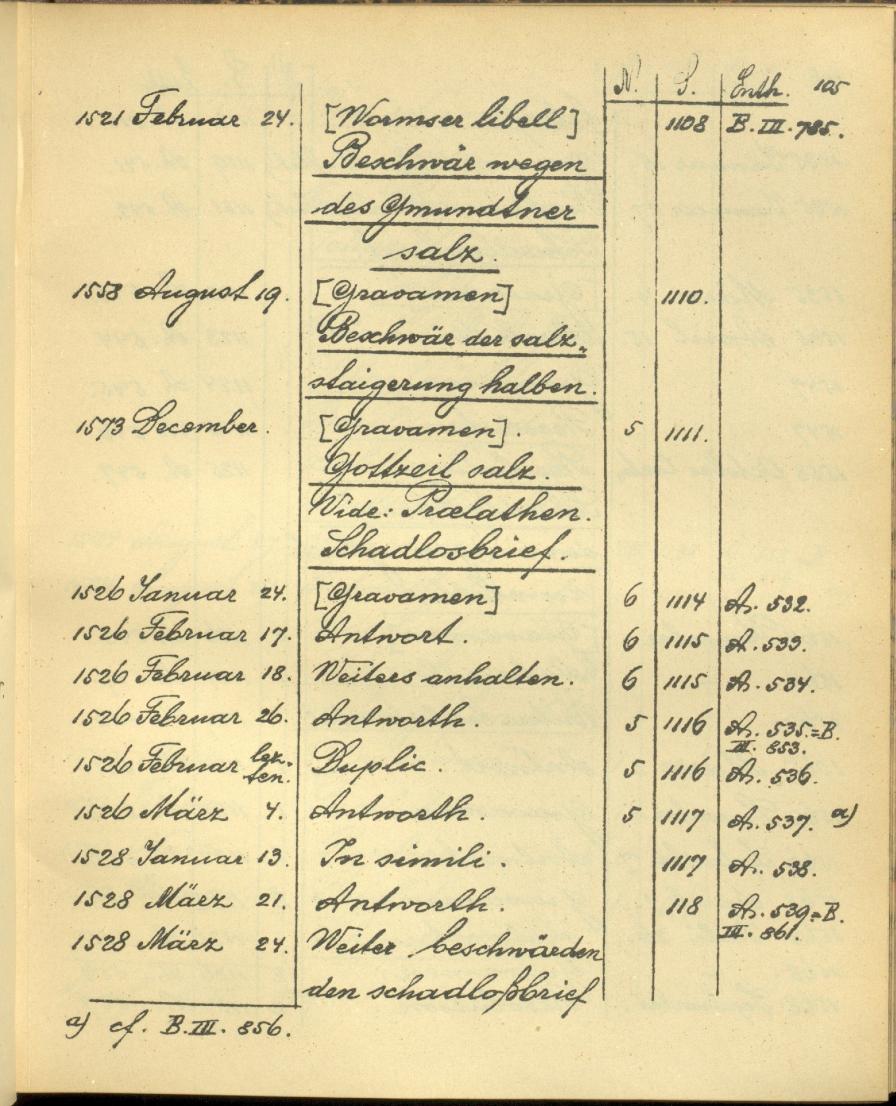 N. S. Enth. 105
1521 Februar 24. [Wormser libell] 1108 B. III. 785.
Beschwär wegen
des Gmundtner
salz.
1558 August 19. [Gravamen] 1110.
Beschwär der salz„
staigerung halben.
1573 December. [Gravamen]. 5 1111.
Gottzeil salz.
Vide: Prælathen.
Schadlosbrief.
1526 Januar 24. [Gravamen] 6 1114 A. 532.
1526 Februar 17. Antwort. 6 1115 A. 533.
1526 Februar 18. Weiters anhalten. 6 1115 A. 534.
1526 Februar 26. Antworth. 5 1116 A. 535.=B.
III. 853.
1526 Februar lez-
ten. Duplic. 5 1116 A. 536.
1526 März 4. Antworth. 5 1117 A. 537. a)
1528 Januar 13. In simili. 1117 A. 538.
1528 März 21. Antworth. 118 A. 539.=B.
III. 861.
1528 März 24. Weiter beschwärden
den schadloßbrief
a) cf. B. III. 856.